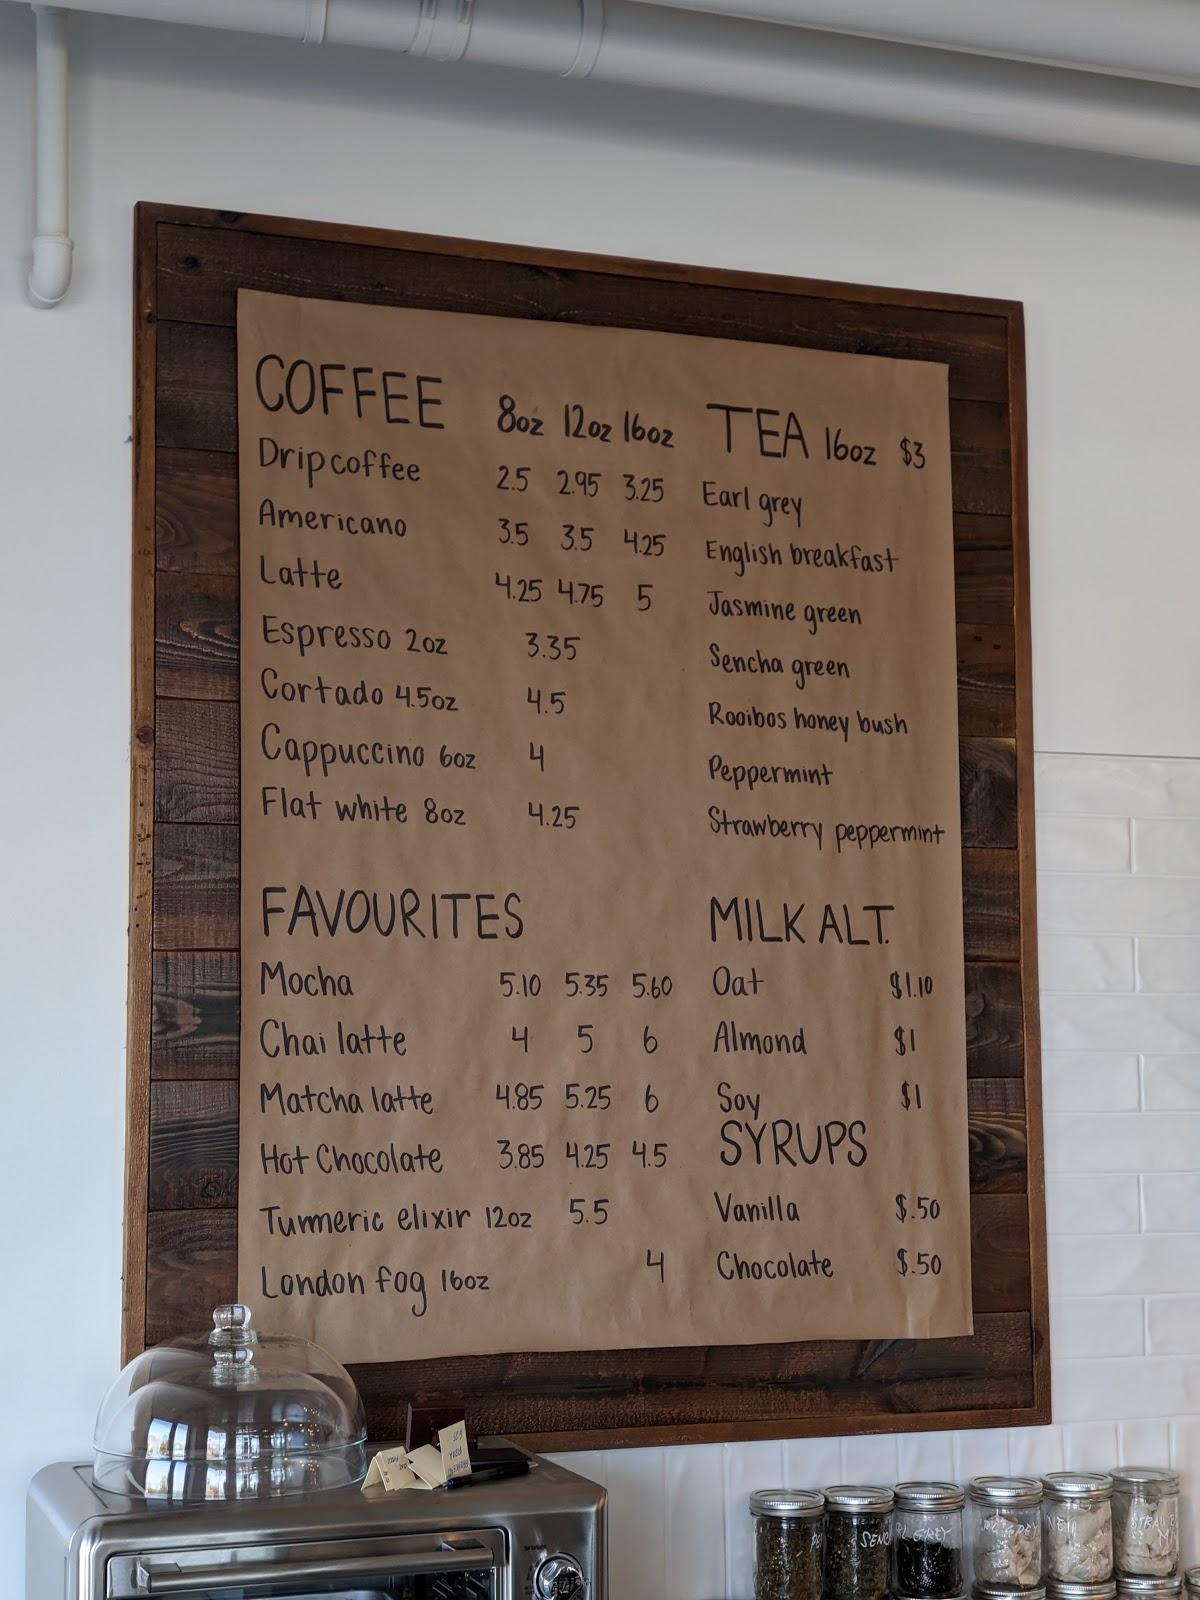 COFFEE 8oz 12oz 16oz
Drip coffee 2.5 2.95 3.25
Americano 3.5 3.5 4.25
Latte 4.25 4.75 5
Espresso 2oz 3.35
Cortado 4.5oz 4.5
Cappuccino 6oz 4
Flat white 8oz 4.25
TEA 16oz $3
Earl grey
English breakfast
Jasmine green
Sencha green
Rooibos honey bush
Peppermint
Strawberry peppermint
FAVOURITES
Mocha 5.10 5.35 5.60
Chai latte 4 5 6
Matcha latte 4.85 5.25 6
Hot Chocolate 3.85 4.25 4.5
Turmeric elixir 12oz 5.5
London fog 16oz 4
MILK ALT.
Oat $1.10
Almond $1
Soy $1
SYRUPS
Vanilla $.50
Chocolate $.50